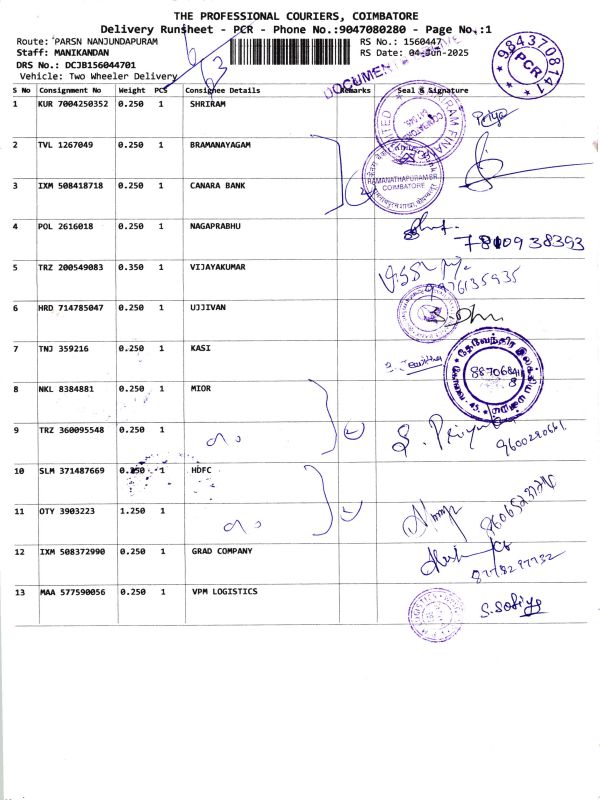 THE PROFESSIONAL COURIERS, COIMBATORE
Delivery Runsheet - PCR - Phone No.:9047080280 - Page No.:1
Route: PARSN NANJUNDAPURAM RS No.: 1560447
Staff: MANIKANDAN RS Date: 04-Jun-2025
DRS No.: DCJB156044701
Vehicle: Two Wheeler Delivery
9843708141
PCR
S No Consignment No Weight PCS Consignee Details Remarks Seal & Signature
1 KUR 7004250352 0.250 1 SHRIRAM
2 TVL 1267049 0.250 1 BRAMANAYAGAM
3 IXM 508418718 0.250 1 CANARA BANK
RAMANATHAPURAM BR
COIMBATORE
4 POL 2616018 0.250 1 NAGAPRABHU
5 TRZ 200549083 0.350 1 VIJAYAKUMAR
9976135935
6 HRD 714785047 0.250 1 UJJIVAN
7 TNJ 359216 0.250 1 KASI
8 NKL 8384881 0.250 1 MIOR
9 TRZ 360095548 0.250 1
10 SLM 371487669 0.250 1 HDFC
11 OTY 3903223 1.250 1
12 IXM 508372990 0.250 1 GRAD COMPANY
13 MAA 577590056 0.250 1 VPM LOGISTICS
S. Sofiya